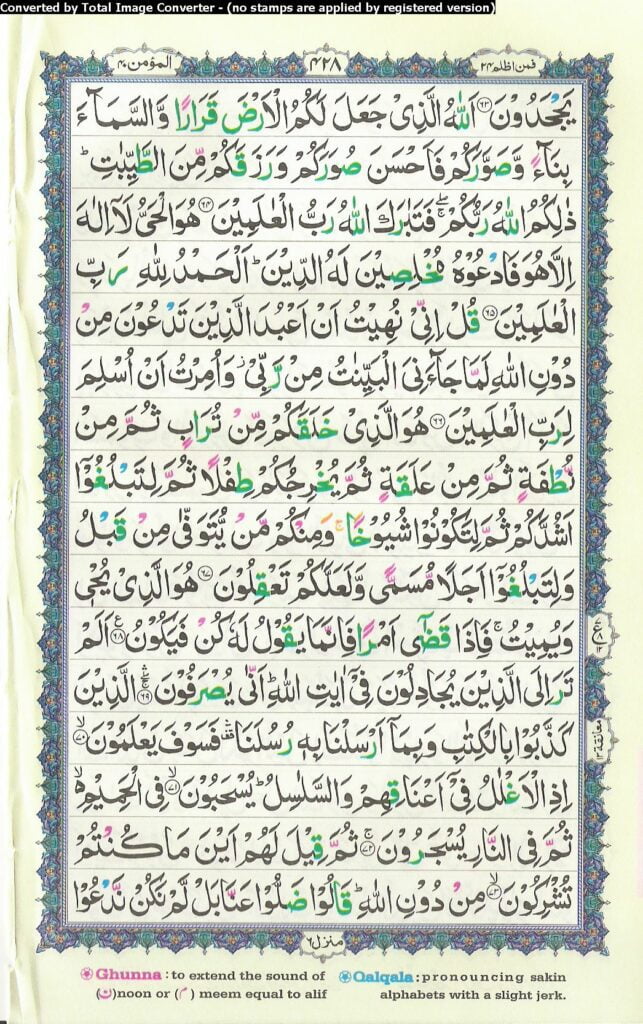 Converted by Total Image Converter - (no stamps are applied by registered version)
المؤمن ۴۰
۴۲۸
فمن اظلم ۲۴
یَجْحَدُوْنَ ۶۳ اَللّٰهُ الَّذِیْ جَعَلَ لَكُمُ الْاَرْضَ قَرَارًا وَّالسَّمَآءَ
بِنَآءً وَّصَوَّرَكُمْ فَاَحْسَنَ صُوَرَكُمْ وَرَزَقَكُمْ مِّنَ الطَّیِّبٰتِ ؕ
ذٰلِكُمُ اللّٰهُ رَبُّكُمْ ۚۖ فَتَبٰرَكَ اللّٰهُ رَبُّ الْعٰلَمِیْنَ ۶۴ هُوَ الْحَیُّ لَاۤ اِلٰهَ
اِلَّا هُوَ فَادْعُوْهُ مُخْلِصِیْنَ لَهُ الدِّیْنَ ؕ اَلْحَمْدُ لِلّٰهِ رَبِّ
الْعٰلَمِیْنَ ۶۵ قُلْ اِنِّیْ نُهِیْتُ اَنْ اَعْبُدَ الَّذِیْنَ تَدْعُوْنَ مِنْ
دُوْنِ اللّٰهِ لَمَّا جَآءَنِیَ الْبَیِّنٰتُ مِنْ رَّبِّیْ ؗ وَاُمِرْتُ اَنْ اُسْلِمَ
لِرَبِّ الْعٰلَمِیْنَ ۶۶ هُوَ الَّذِیْ خَلَقَكُمْ مِّنْ تُرَابٍ ثُمَّ مِنْ
نُّطْفَةٍ ثُمَّ مِنْ عَلَقَةٍ ثُمَّ یُخْرِجُكُمْ طِفْلًا ثُمَّ لِتَبْلُغُوْۤا
اَشُدَّكُمْ ثُمَّ لِتَكُوْنُوْا شُیُوْخًا ۚ وَمِنْكُمْ مَّنْ یُّتَوَفّٰی مِنْ قَبْلُ
وَلِتَبْلُغُوْۤا اَجَلًا مُّسَمًّی وَّلَعَلَّكُمْ تَعْقِلُوْنَ ۶۷ هُوَ الَّذِیْ یُحْیٖ
وَیُمِیْتُ ۚ فَاِذَا قَضٰۤی اَمْرًا فَاِنَّمَا یَقُوْلُ لَهٗ كُنْ فَیَكُوْنُ ۶۸ ع اَلَمْ
تَرَ اِلَی الَّذِیْنَ یُجَادِلُوْنَ فِیْۤ اٰیٰتِ اللّٰهِ ؕ اَنّٰی یُصْرَفُوْنَ ۶۹ الَّذِیْنَ
كَذَّبُوْا بِالْكِتٰبِ وَبِمَاۤ اَرْسَلْنَا بِهٖ رُسُلَنَا ۛ فَسَوْفَ یَعْلَمُوْنَ ۷۰ ۙ
اِذِ الْاَغْلٰلُ فِیْۤ اَعْنَاقِهِمْ وَالسَّلٰسِلُ ؕ یُسْحَبُوْنَ ۷۱ ۙ فِی الْحَمِیْمِ ۙ۬
ثُمَّ فِی النَّارِ یُسْجَرُوْنَ ۷۲ ۚ ثُمَّ قِیْلَ لَهُمْ اَیْنَ مَا كُنْتُمْ
تُشْرِكُوْنَ ۷۳ ۙ مِنْ دُوْنِ اللّٰهِ ؕ قَالُوْا ضَلُّوْا عَنَّا بَلْ لَّمْ نَكُنْ نَّدْعُوْا
معانقة ۱۳
منزل ۶
Ghunna : to extend the sound of
(ن) noon or (م) meem equal to alif
Qalqala : pronouncing sakin
alphabets with a slight jerk.